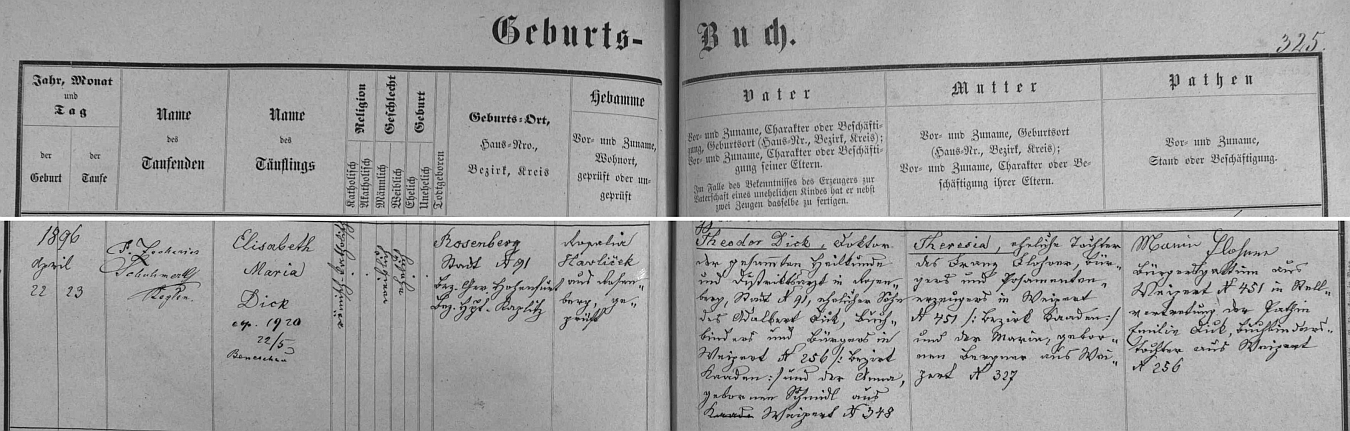 Geburts-Buch.
325.
Jahr, Monat
und
Tag
der
Geburt
der
Taufe
Name
des
Taufenden
Name
des
Täuflings
Religion
Katholisch
Akatholisch
Geschlecht
Männlich
Weiblich
Geburt
Ehelich
Unehelich
Todtgeboren
Geburts-Ort,
Haus-Nro.,
Bezirk, Kreis
Hebamme
Vor- und Zuname,
Wohnort,
geprüft oder un-
geprüft
Vater
Vor- und Zuname, Charakter oder Beschäfti-
gung, Geburtsort (Haus-Nr., Bezirk, Kreis);
Vor- und Zuname, Charakter oder Beschäfti-
gung seiner Eltern.
Im Falle des Bekenntnisses des Erzeugers zur
Vaterschaft eines unehelichen Kindes hat er nebst
zwei Zeugen dasselbe zu fertigen.
Mutter
Vor- und Zuname, Geburtsort
(Haus-Nr., Bezirk, Kreis);
Vor- und Zuname, Charakter oder Be-
schäftigung ihrer Eltern.
Pathen
Vor- und Zuname,
Stand oder Beschäftigung.
1896
April
22 23
P. Zacharias
Kaplan
Elisabeth
Maria
Dick
cop. 1920
22/5
Beneschau
römisch katholisch
weiblich
ehelich
Rosenberg
Stadt N 91
Bez. Ger. Hohenfurt
Bez. Hpt. Kaplitz
Rosalia
Havliček
aus Rosen-
berg, ge-
prüft
Theodor Dick, Doktor
der gesamten Heilkunde
und Distriktsarzt in Rosen-
berg, Stadt N 91, ehelicher Sohn
des Adalbert Dick, Buch-
binders und Bürgers in
Weipert N 256 /: Bezirk
Kaaden :/ und der Anna,
gebornen Schmidl aus
Weipert N 348
Theresia, eheliche Tochter
des Franz Flohrer, Bür-
gers und Posamenten-
erzeugers in Weipert
N 451 /: Bezirk Kaaden :/
und der Maria, gebor-
nen Bergner aus Wei-
pert N 327
Maria
Bürgersgattin aus
Weipert N 451 in Stell-
vertretung der Pathin
Emilie Dick, Buchbinders-
tochter aus Weipert
N 256